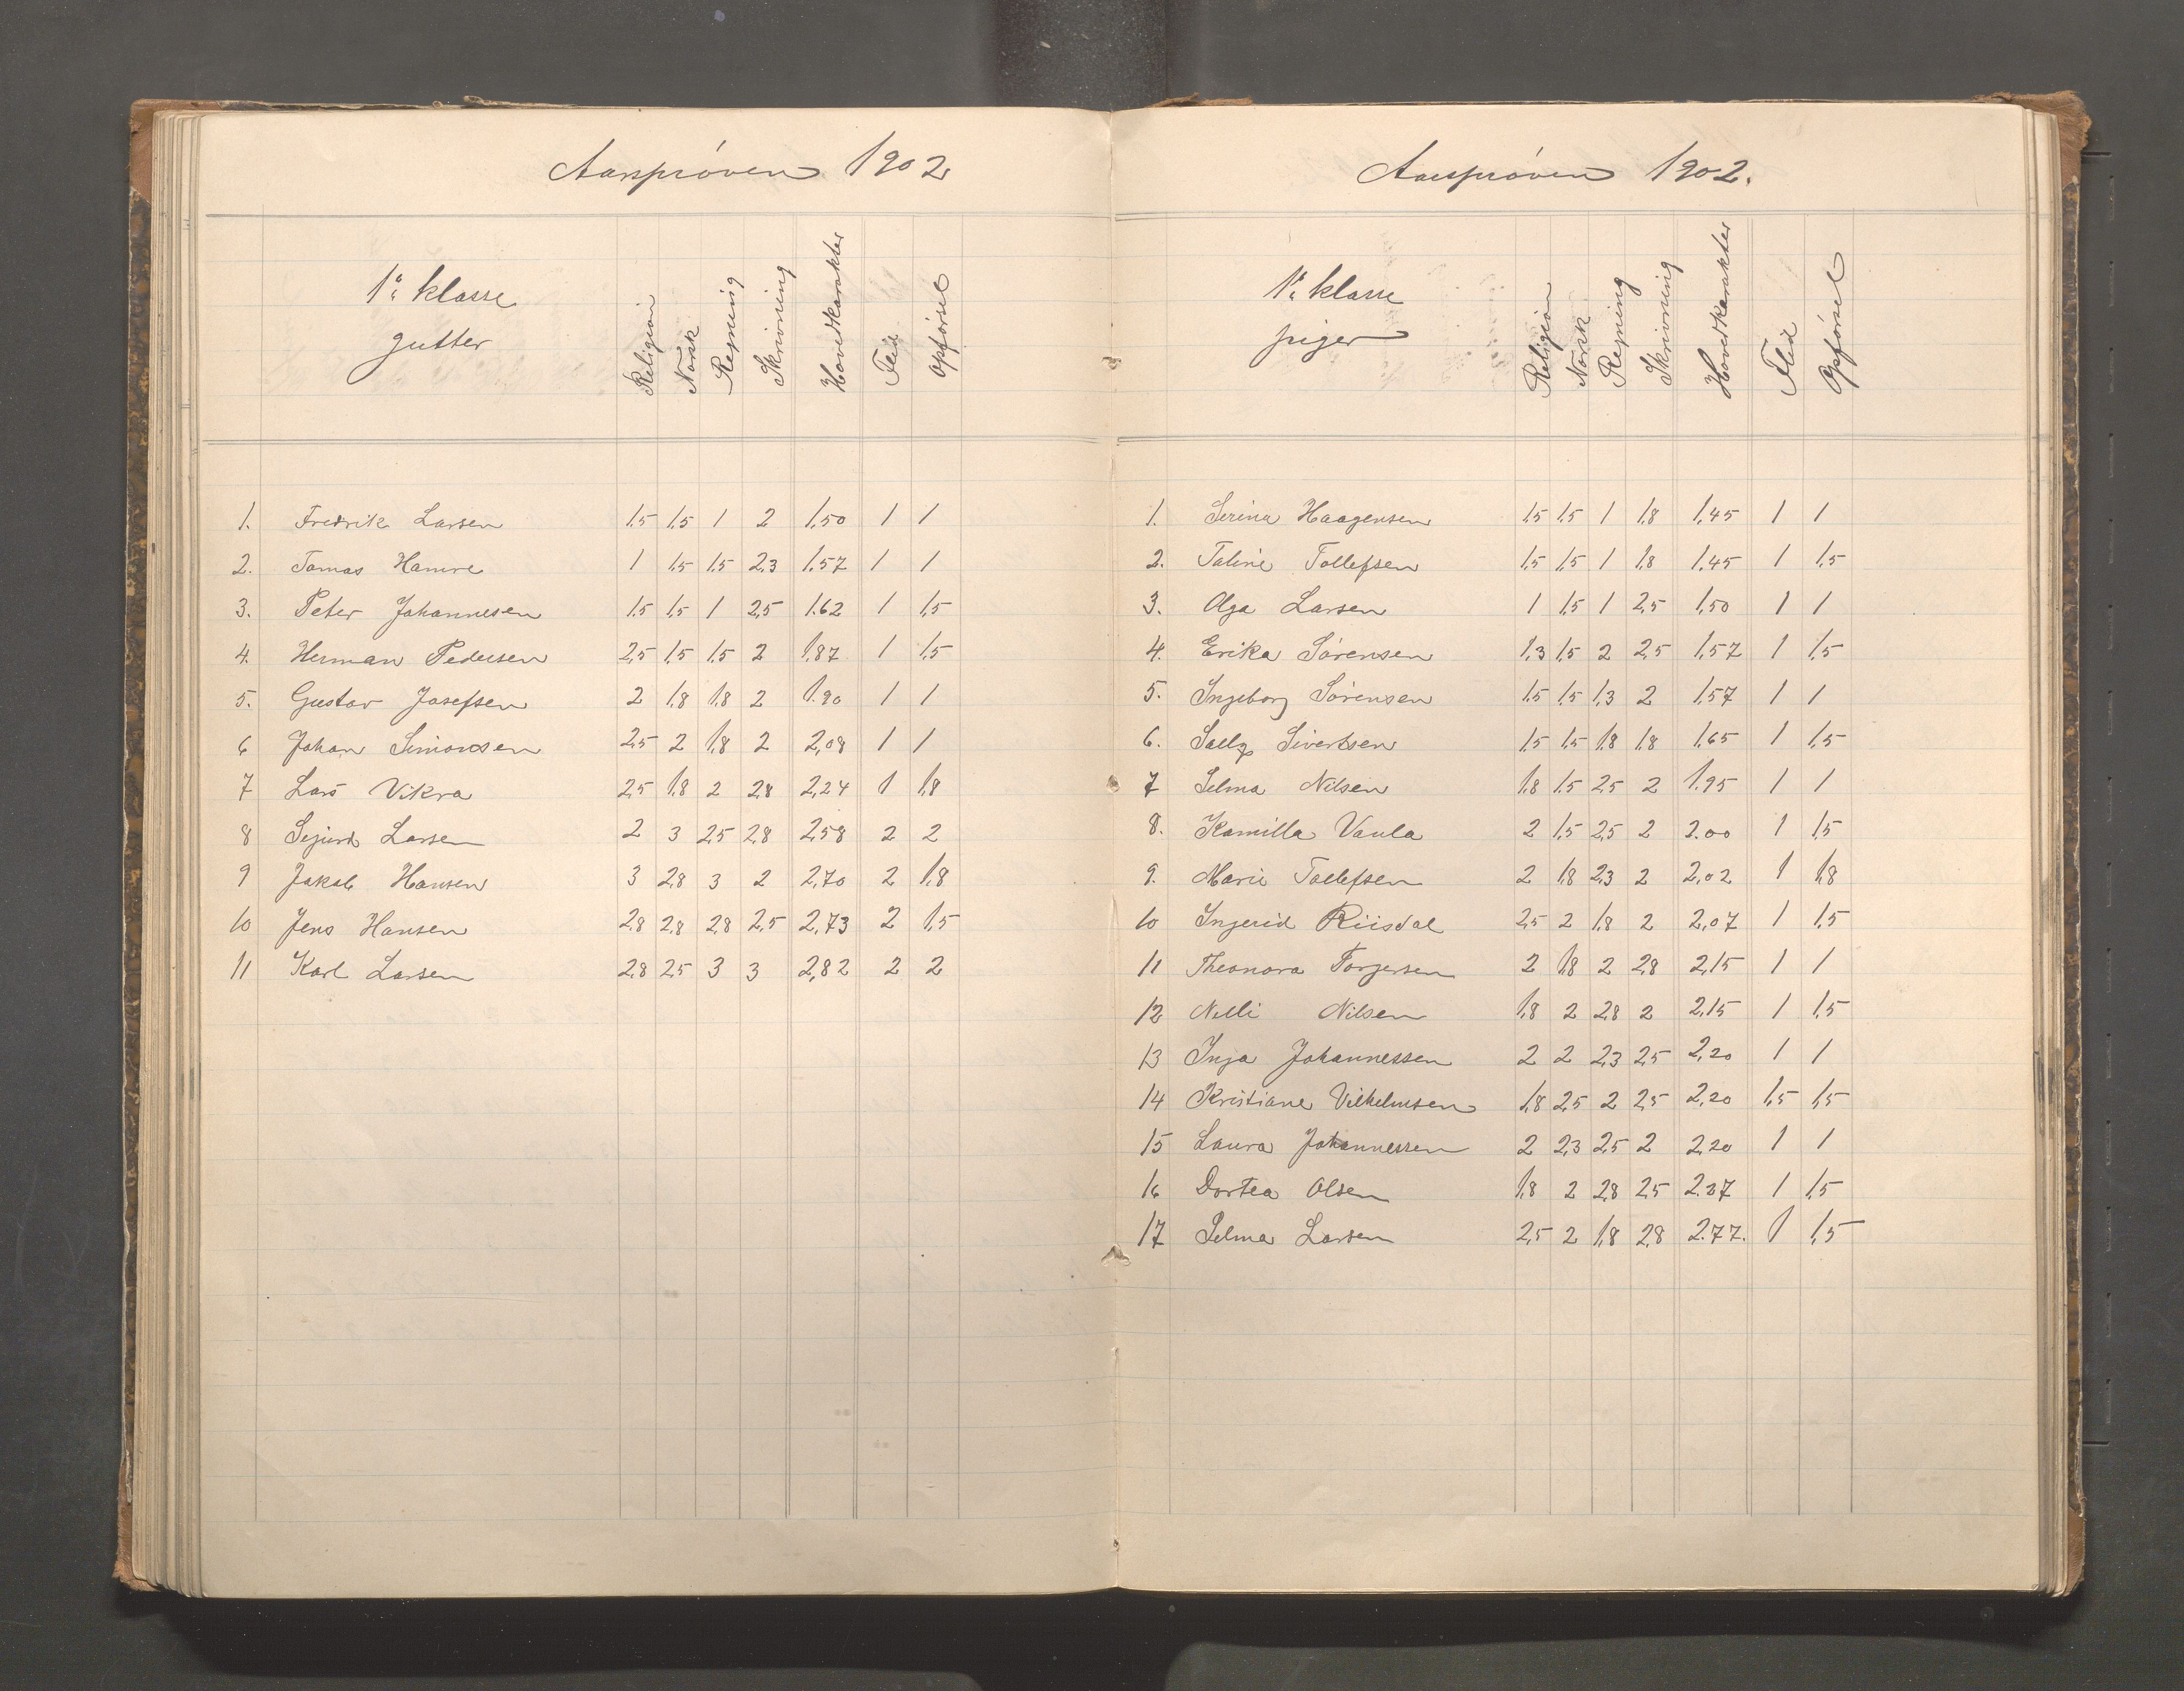 Aarsprøven 1902
1ste klasse
gutter
Religion Norsk Regning Skrivning Hovedkarakter Flid Opførsel
1. Fredrik Larsen 1,5 1,5 1 2 1,50 1 1
2. Tomas Hamre 1 1,5 1,5 2,3 1,57 1 1
3. Peter Johannesen 1,5 1,5 1 2,5 1.62 1 1,5
4. Herman Pedersen 2,5 1,5 1,5 2 1,87 1 1,5
5. Gustav Josefsen 2 1,8 1,8 2 1.90 1 1
6 Johan Simonsen 2,5 2 1,8 2 2,08 1 1
7 Lars Vikra 2,5 1,8 2 2,8 2,24 1 1,8
8 Sigurd Larsen 2 3 2,5 2,8 2,58 2 2
9 Jakob Hansen 3 2,8 3 2 2,70 2 1,8
10 Jens Hansen 2,8 2,8 2,8 2,5 2,73 2 1,5
11 Karl Larsen 2,8 2,5 3 3 2,82 2 2
Aarsprøven 1902.
1ste klasse
piger
Religion Norsk Regning Skrivning Hovedkarakter Flid Opførsel
1. Serina Haagensen 1,5 1,5 1 1,8 1,45 1 1
2. Taline Tollefsen 1,5 1,5 1 1,8 1,45 1 1,5
3. Olga Larsen 1 1,5 1 2,5 1,50 1 1
4. Erika Sørensen 1,3 1,5 2 2,5 1,57 1 1,5
5. Ingeborg Sørensen 1,5 1,5 1,3 2 1,57 1 1
6. Sivertsen 1,5 1,5 1,8 1,8 1,65 1 1,5
7 Selma Nilsen 1,8 1,5 2,5 2 1.95 1 1
8. Kamilla Vaula 2 1,5 2,5 2 2.00 1 1,5
9. Marie Tollefsen 2 1,8 2,3 2 2,02 1 1,8
10 Ingerid Riisdal 2,5 2 1,8 2 2,07 1 1,5
11 Theonora Torgersen 2 1,8 2 2,8 2,15 1 1
12 Nelli Nilsen 1,8 2 2,8 2 2,15 1 1,5
13 Inga Johannessen 2 2 2,3 2,5 2,20 1 1
14 Kristiane Vilhelmsen 1,8 2,5 2 2,5 2,20 1,5 1,5
15 Laura Johannessen 2 2,3 2,5 2 2,20 1 1
16 Dortea Olsen 1,8 2 2,8 2,5 2.27 1 1,5
17 Selma Larsen 2,5 2 1,8 2,8 2.77. 1 1,5